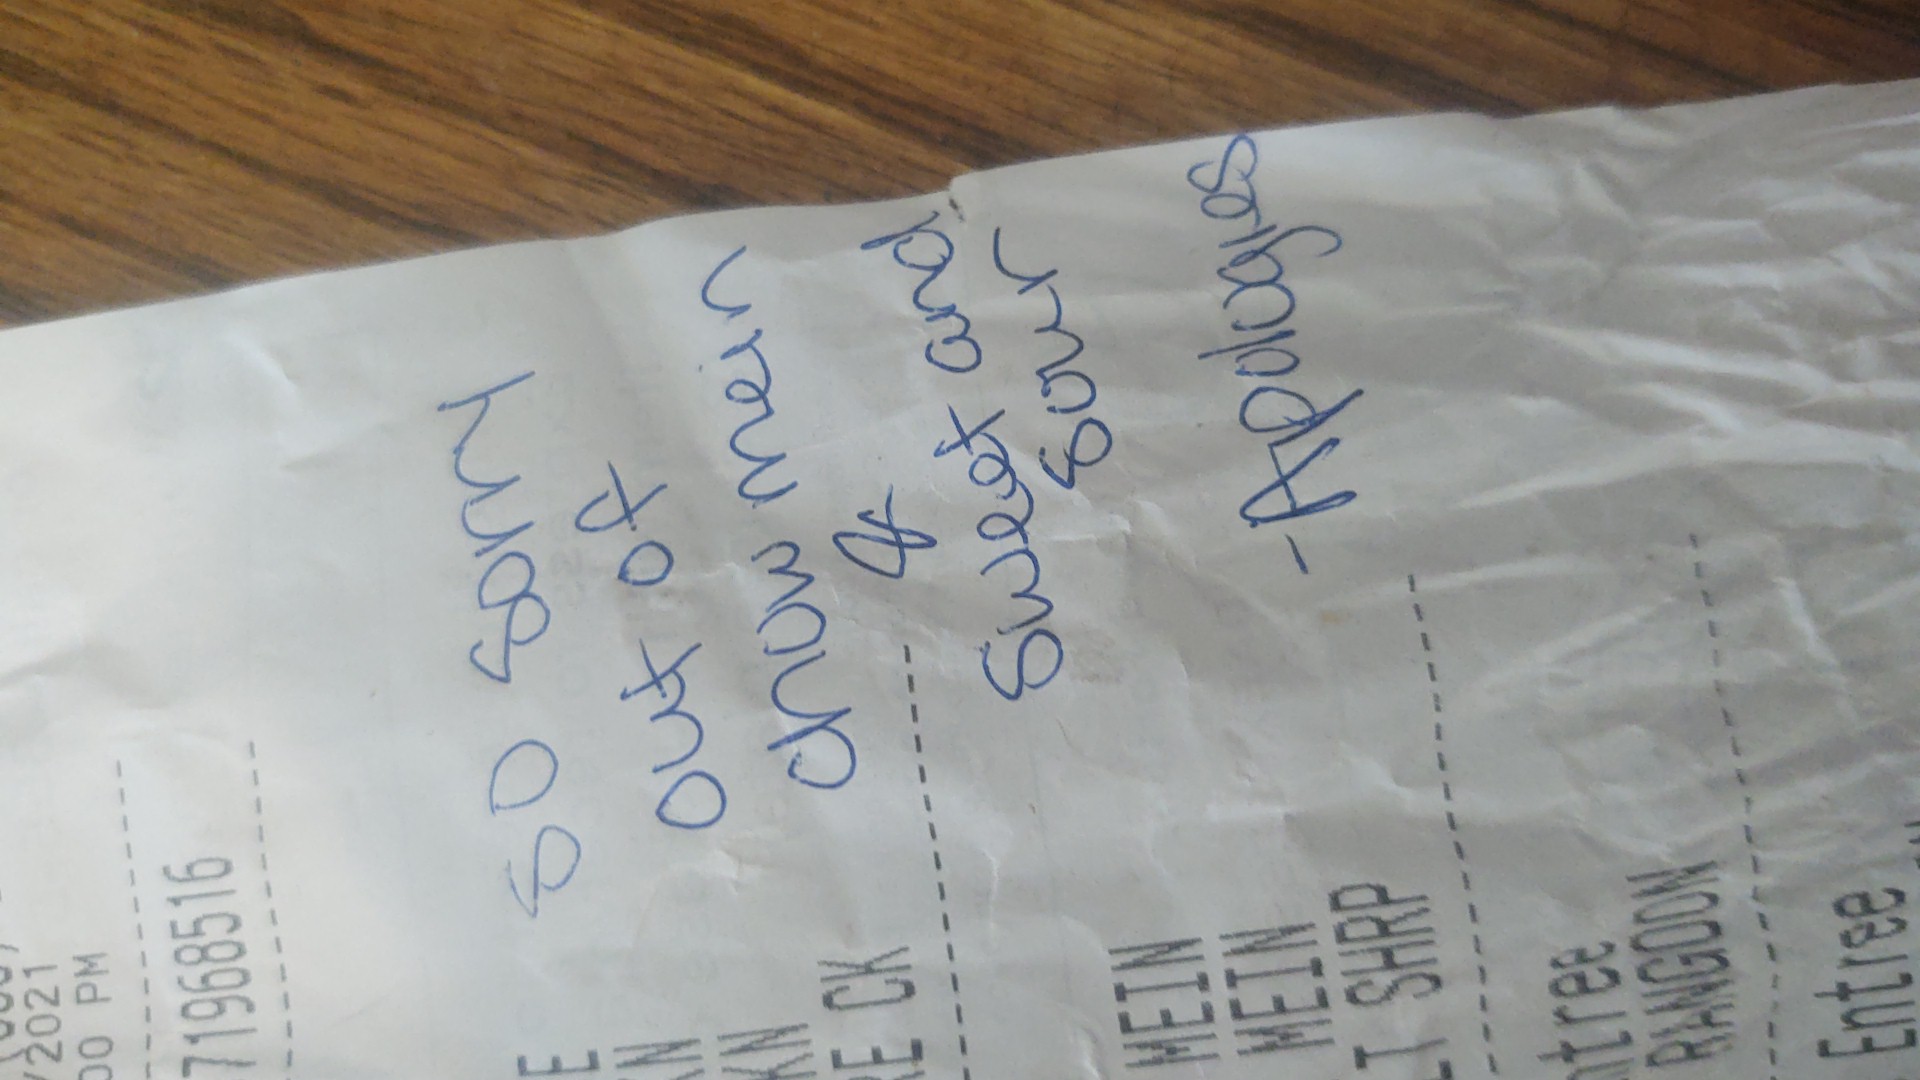 /2021
00 PM
71968516
so sorry
out of
chow mein
&
sweet and
sour
- Apologies
E
KN
RE CK
MEIN
MEIN
T SHRP
ntree
RANGOON
Entree